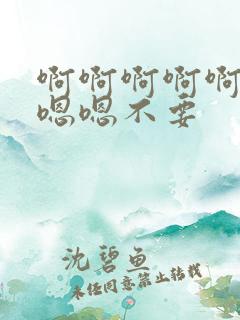 啊啊啊啊啊
嗯嗯不要
沈碧鱼
未经同意禁止转载